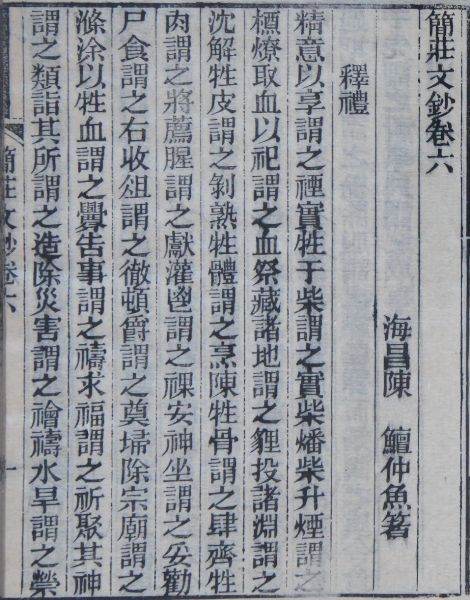 簡莊文鈔卷六
海昌陳 鱣仲魚著
釋禮
精意以享謂之禋實牲于柴謂之實柴燔柴升煙謂之
槱燎取血以祀謂之血祭藏諸地謂之貍投諸淵謂之
沈解牲皮謂之剝熟牲體謂之烹陳牲骨謂之肆齊牲
肉謂之將薦腥謂之獻灌鬯謂之祼安神坐謂之妥勸
尸食謂之右收俎謂之徹頓爵謂之奠埽除宗廟謂之
滌涂以牲血謂之釁告事謂之禱求福謂之祈聚其神
謂之類詣其所謂之造除災害謂之禬禱水旱謂之禜
簡莊文鈔卷六
一